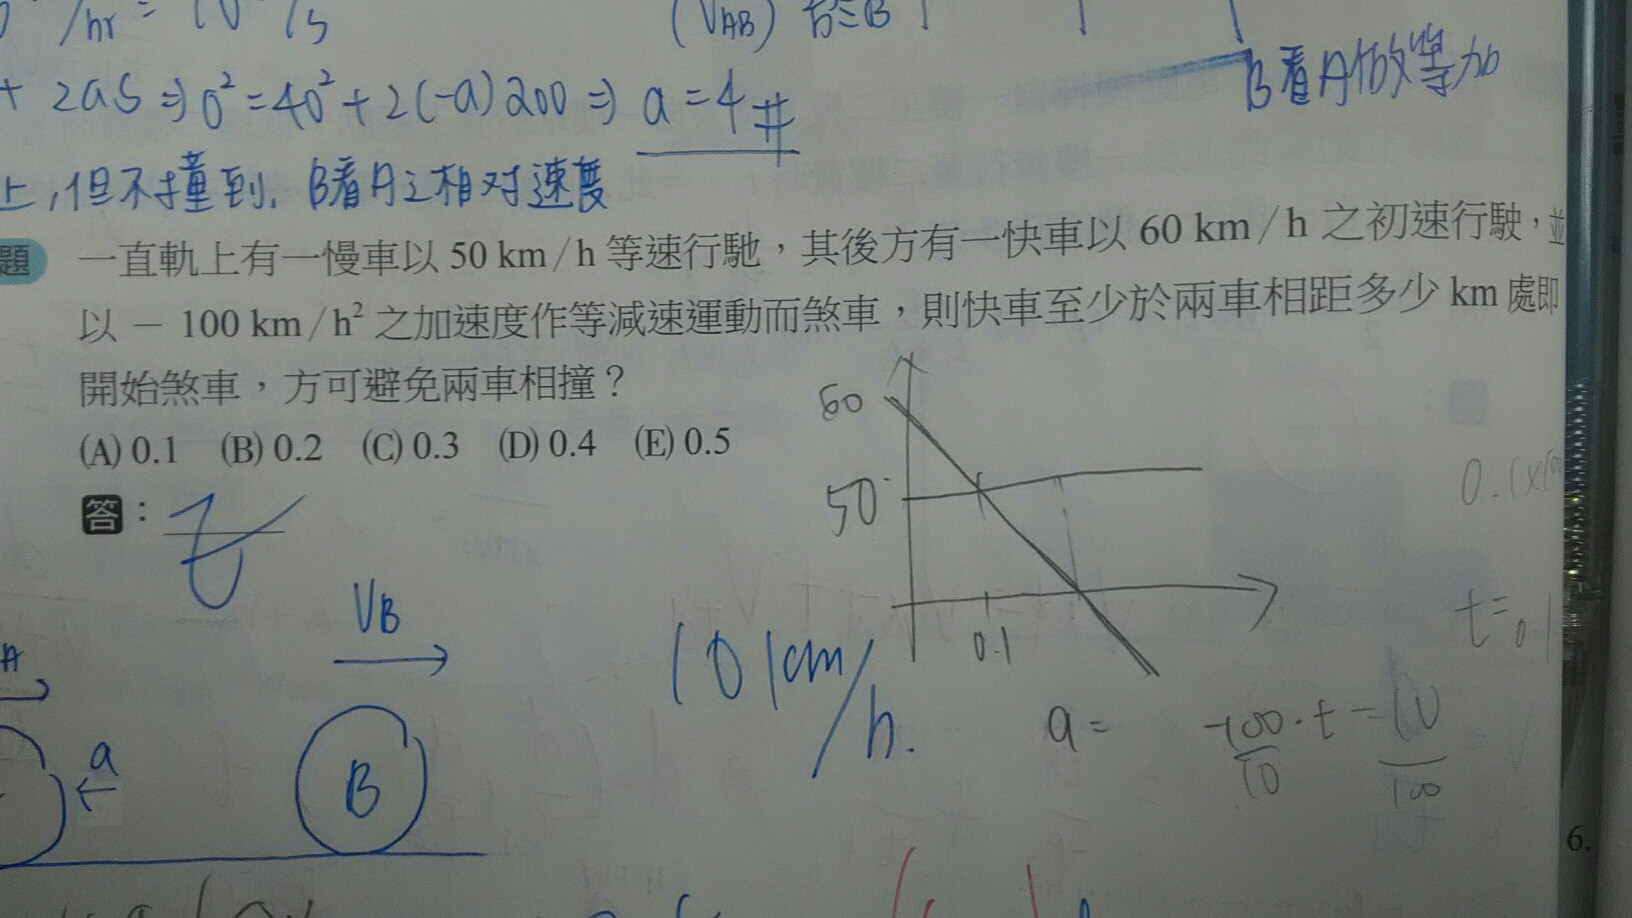 /hr = 10 /s
(VAB) 於B
+ 2aS ⇒ 0² = 40² + 2(-a)200 ⇒ a = 4 #
B看A做等加
上,但不撞到. B看A之相对速度
題 一直軌上有一慢車以 50 km/h 等速行馳，其後方有一快車以 60 km/h 之初速行駛，並
以 － 100 km/h² 之加速度作等減速運動而煞車，則快車至少於兩車相距多少 km 處即
開始煞車，方可避免兩車相撞？
(A) 0.1 (B) 0.2 (C) 0.3 (D) 0.4 (E) 0.5
答：
60
50
0.1
0.1x
t=0.1
VB
A
a
B
10 km/h.
a = -100/10 · t = 10/100
6.